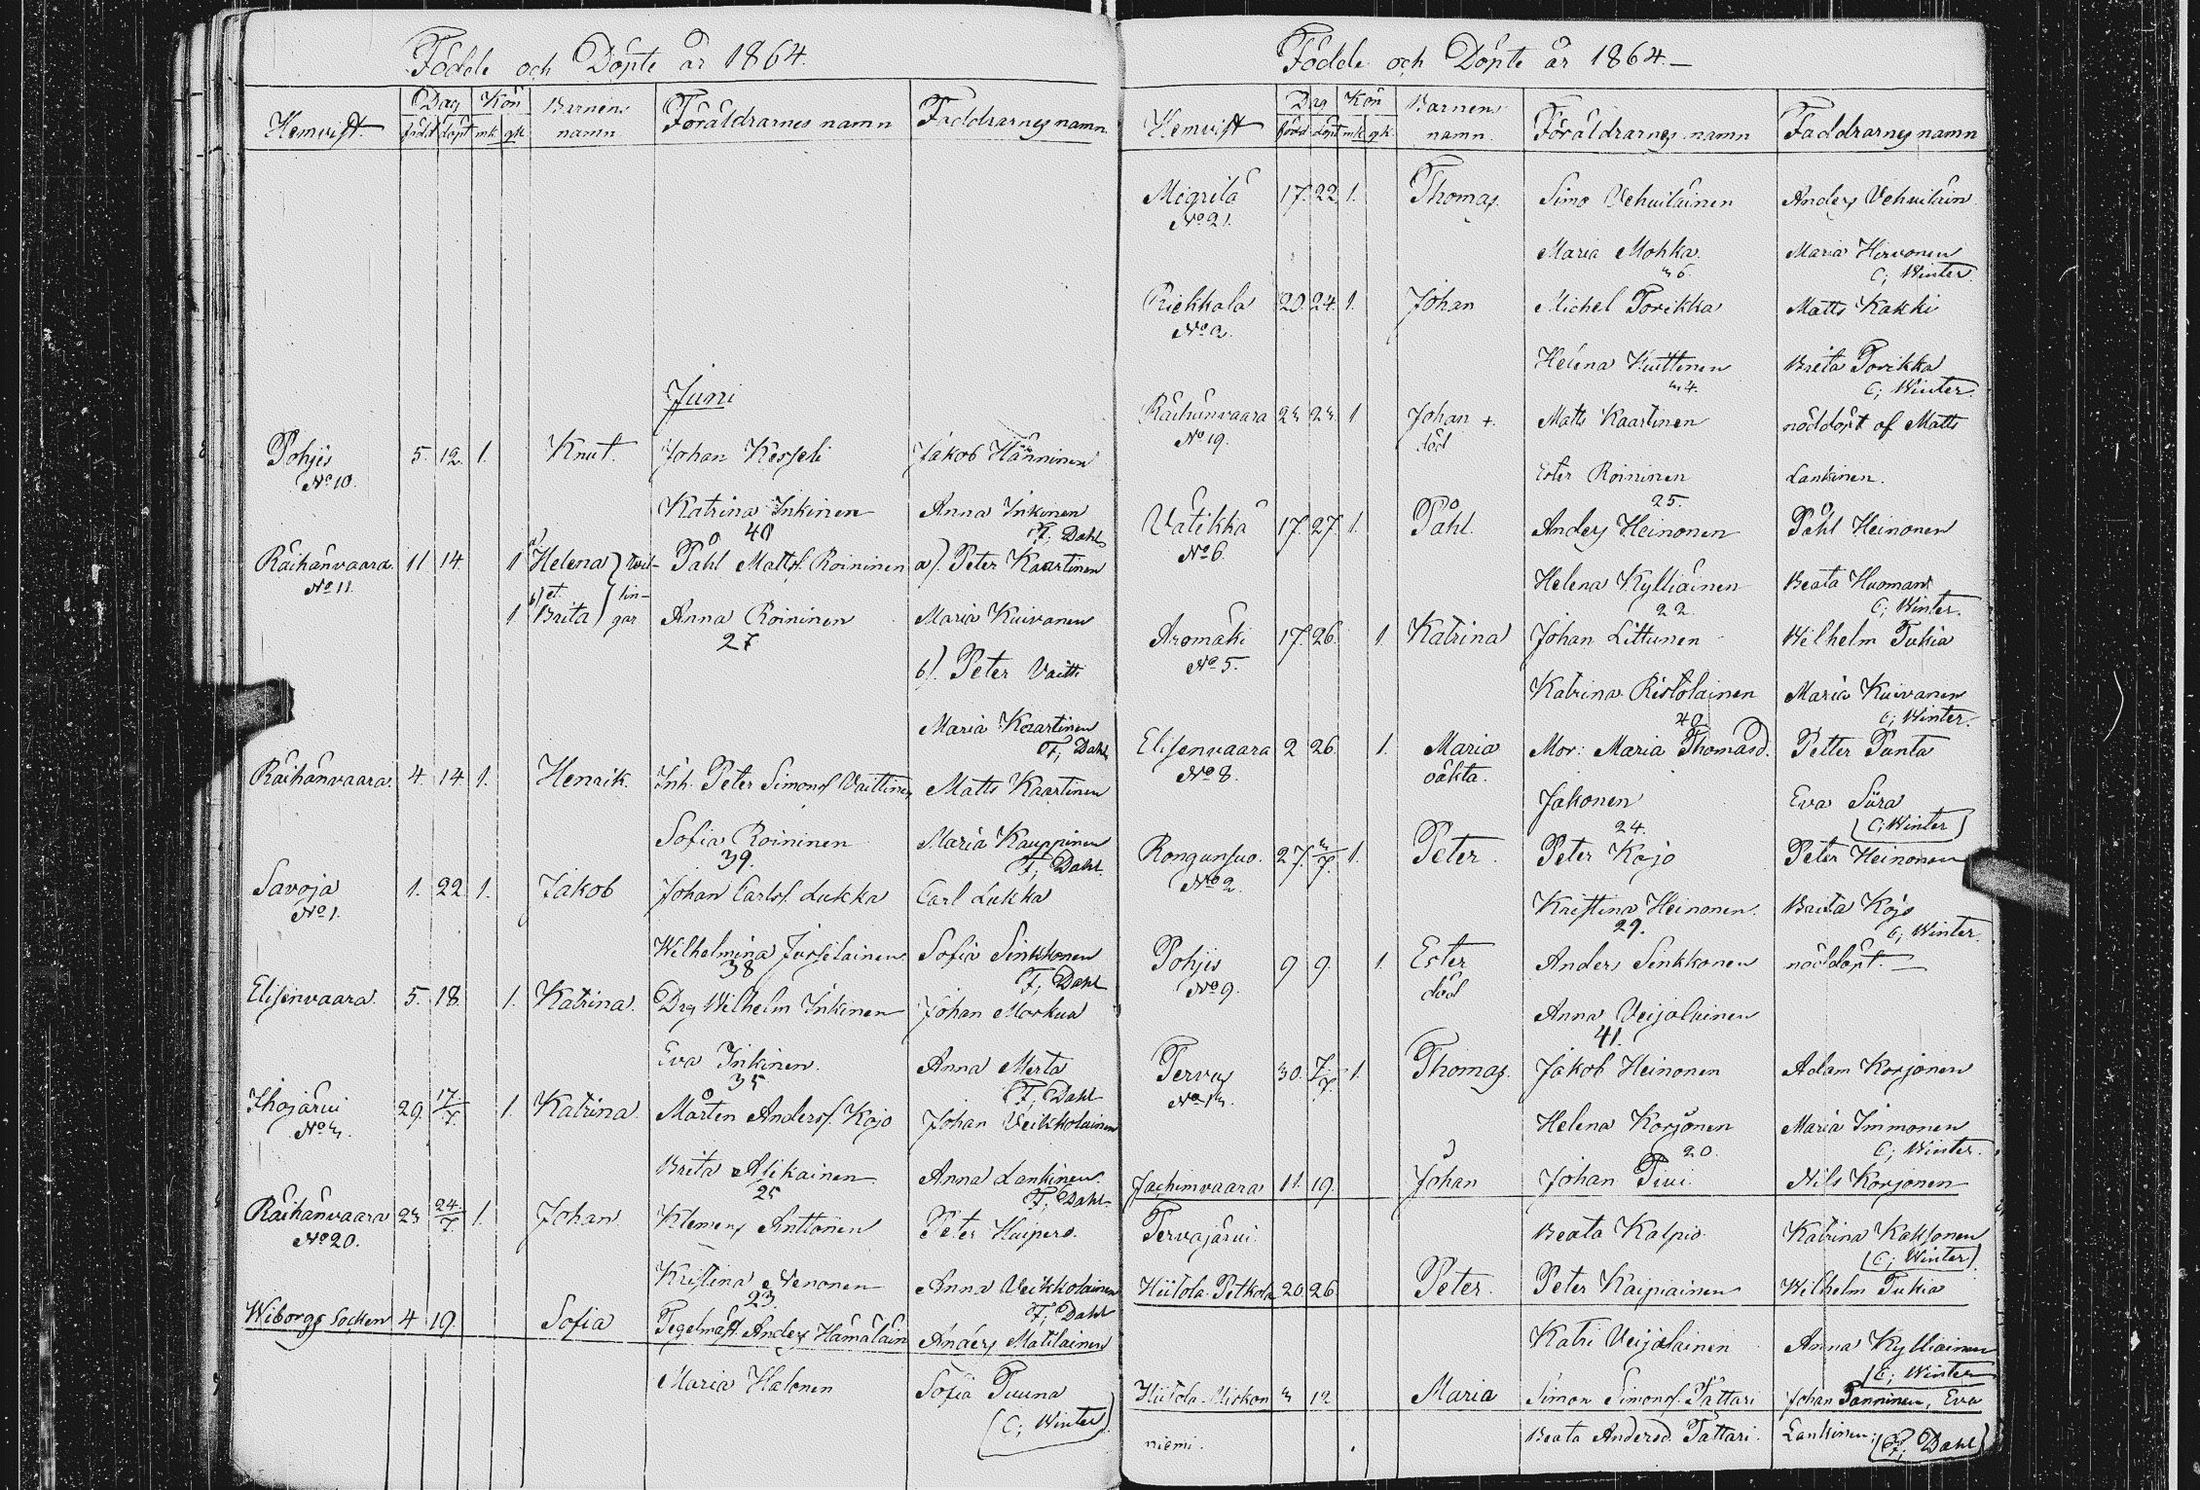 Födde och Döpte år 1864.
Hemvist Dag Kön Barnens namn Föräldrarnes namn Faddrarnes namn
född döpt mk qk
Juni
Pohjis 5. 12. 1. Knut. Johan Kesseli Jakob Hänninen
No 10. Katrina Inkinen Anna Inkinen
40 F; Dahl
Räihänvaara 11 14. 1 a) Helena } tvil- Påhl Mattss. Roininen a). Peter Kaartinen
No 11. b) et. } lin-
1 Brita } gar Anna Roininen Maria Kuivanen
27
b). Peter Vaitti
Maria Kaartinen
F; Dahl
Räihänvaara. 4. 14 1. Henrik. Inh. Peter Simonss Vaittinen Matts Kaartinen
Sofia Roininen Maria Kauppinen
39. F; Dahl.
Savoja 1. 22 1. Jakob Johan Carlss. Lukka Carl Lukka
No 1.
Wilhelmina Jussilainen Sofia Sinkkonen
38 F; Dahl
Elisenvaara. 5. 18. 1. Katrina. Drg Wilhelm Inkinen Johan Morkua
Eva Inkinen. Anna Merta
35 F; Dahl
Ihojärvi 29. 17/7. 1. Katrina. Mårten Anderss. Kojo Johan Veikkolainen
No 3.
Brita Asikainen Anna Lankinen.
25 F; Dahl
Räihänvaara 23 24/7. 1. Johan. Klemens Anttonen Peter Huipero.
No 20.
Kristina Nenonen Anna Veikkolainen
23. F; Dahl
Wiborgs Socken 4 19. Sofia Tegelmäst. Anders Hämäläin Anders Matilainen
Maria Halonen Sofia Tuuna
(C; Winter)
Födde och Döpte år 1864.–
Hemvist Dag Kön Barnens namn. Föräldrarnes namn Faddrarnes namn
född döpt mk qk
Migrilä 17. 22. 1. Thomas. Simo Vehviläinen Anders Vehviläin
No 21.
Maria Mohka. Maria Hirvonen
36 C; Winter.
Riekkala 20. 24. 1. Johan Michel Torikka Matts Kakki
No 2.
Helena Kuittinen Brita Torikka
34. C; Winter.
Räihänvaara 23 23. 1 Johan +. Matts Kaartinen nöddöpt af Matts
No 19. död
Ester Roininen Lankinen.
25.
Vätikkä 17. 27. 1. Påhl. Anders Heinonen Påhl Heinonen
No 6
Helena Kylliäinen Beata Huoman
22 C; Winter.
Aromäki 17. 26. 1. Katrina Johan Littunen Wilhelm Tukia
No 5.
Katrina Ristolainen Maria Kuivanen
40 C; Winter.
Elisenvaara 2 26. 1. Maria Mor: Maria Thomasd. Petter Panta
No 8. oäkta.
Jakonen Eva Siira
24. (C; Winter)
Rongunsuo. 27. 3/7. 1. Peter. Peter Kojo Peter Heinonen
No 2.
Kristina Heinonen. Brita Kojo
29. C; Winter.
Pohjis 9 9. 1. Ester Anders Sinkkonen nöddöpt.–
No 9. död
Anna Veijalainen
41.
Tervas 30. 7/7. 1. Thomas. Jakob Heinonen Adam Korjonen
No 13.
Helena Korjonen Maria Immonen
20. C; Winter.
Jachimvaara 11. 19. Johan Johan Piui Nils Korjonen
Tervajärvi. Beata Kalpio Katrina Kaksonen
(C; Winter)
Hiitola Petkola 20 26 Peter. Peter Kaipiainen Wilhelm Tukia
Katri Veijalainen Anna Kylliäinen
(C; Winter
Hiitola Miskon 3 12 Maria Simon Simonss. Tattari Johan Panninen, Eva
niemi. Beata Andersd. Tattari. Lankinen. (F; Dahl)